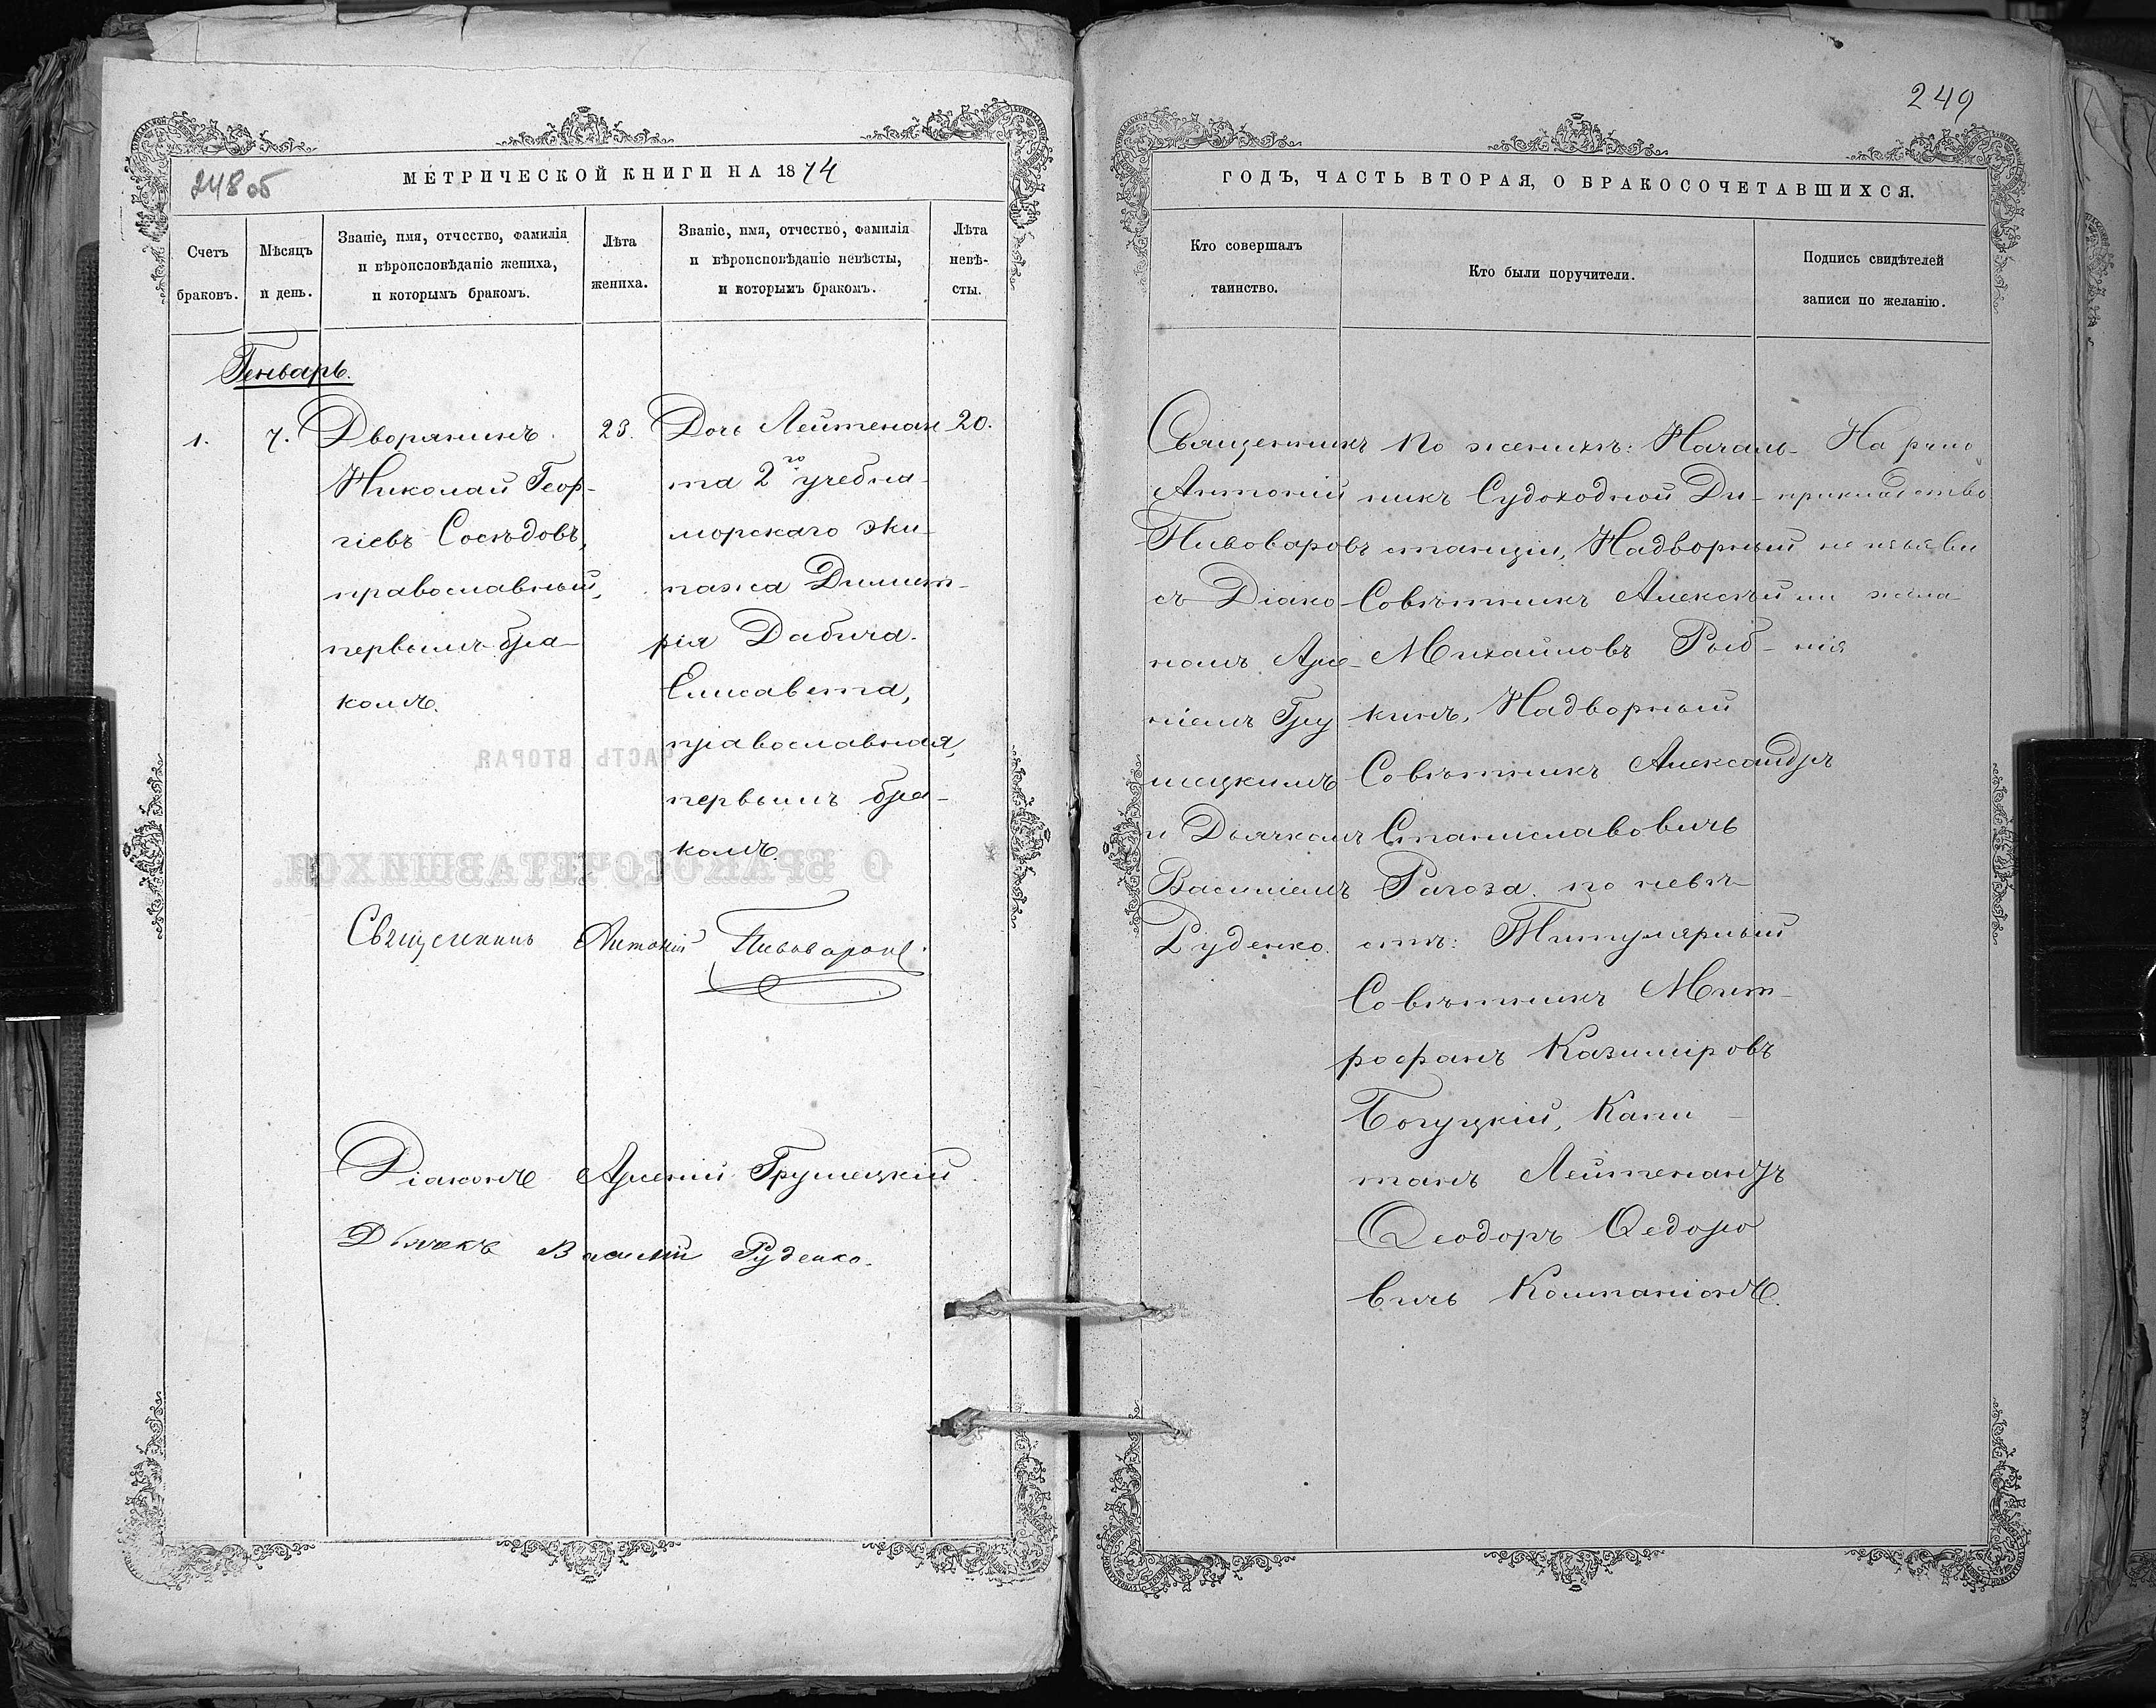 248 об
МЕТРИЧЕСКОЙ КНИГИ НА 1874
Счетъ браковъ.
Мѣсяцъ и день.
Званіе, имя, отчество, фамилія
и вѣроисповѣданіе жениха,
и которымъ бракомъ.
Лѣта жениха.
Званіе, имя, отчество, фамилія
и вѣроисповѣданіе невѣсты,
и которымъ бракомъ.
Лѣта невѣ-
сты.
Генварь.
1.
7.
Дворянинъ
Николай Геор-
гіевъ Сосѣдовъ,
православный,
первымъ бра-
комъ.
23.
Дочь Лейтенан
та 2го учебна-
морскаго эки-
пажа Димит-
рія Дабича.
Елисавета,
православная,
первымъ бра-
комъ.
20.
Священникъ Антоній Пивоваровъ.
Діаконъ Арсеній Грушецкій
Дьячекъ Василій Руденко.
249
ГОДЪ, ЧАСТЬ ВТОРАЯ, О БРАКОСОЧЕТАВШИХСЯ.
Кто совершалъ
таинство.
Кто были поручители.
Подпись свидѣтелей
записи по желанію.
Священникъ
Антоній
Пивоваровъ
съ Діако-
номъ Арсе-
ніемъ Гру
шецкимъ
и Дьячкомъ
Василіемъ
Руденко.
По женихѣ: Началь-
никъ Судоходной Ди-
станціи, Надворный
Совѣтникъ Алексѣй
Михайловъ Рыб-
кинъ, Надворный
Совѣтникъ Александръ
Станиславовичъ
Рагоза. по невѣ-
стѣ: Титулярный
Совѣтникъ Мит-
рофанъ Казиміровъ
Богуцкій, Капи-
танъ Лейтенантъ
Ѳеодоръ Ѳедоро
вичъ Компаніонъ.
На руко
прикладство
не изъяви
ли жела
нія